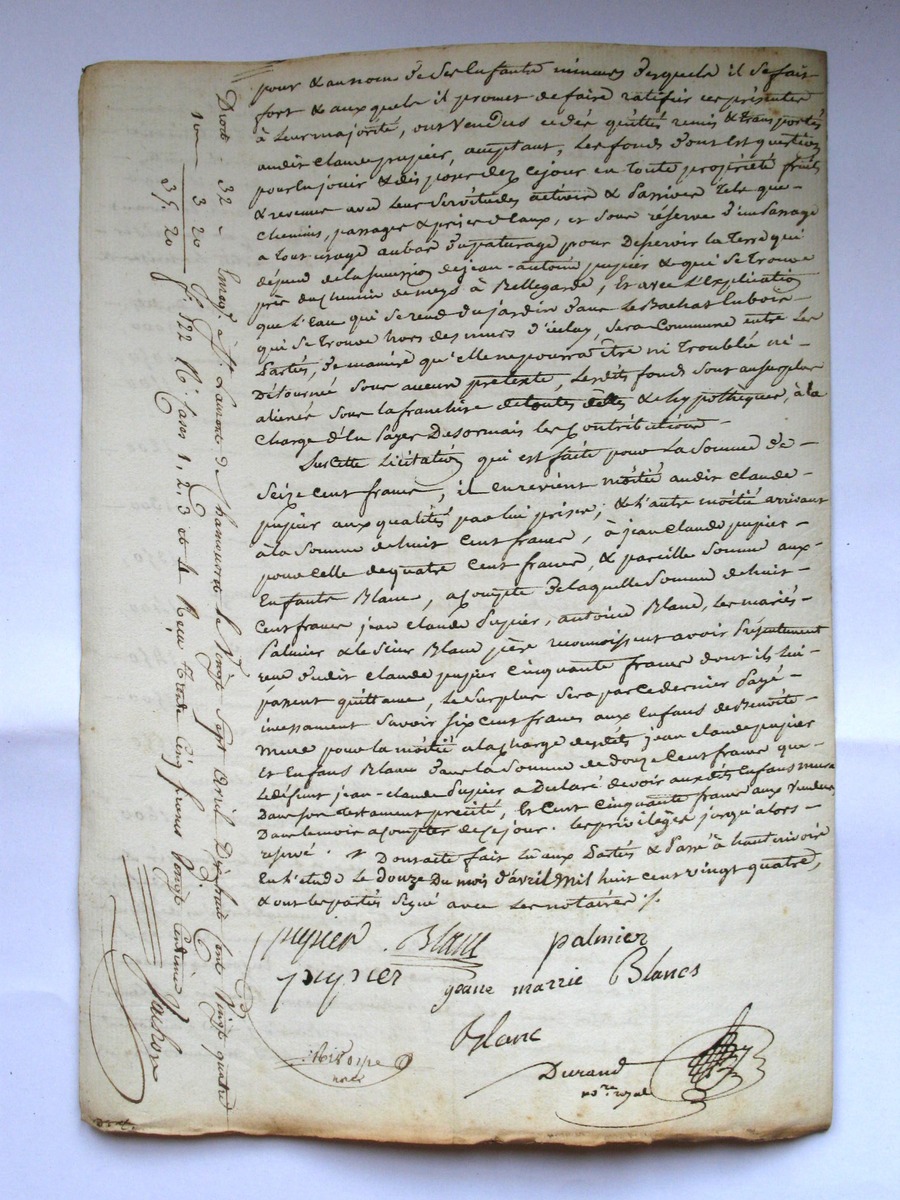 pour & au nom de ses Enfants mineurs desquels il se fait
fort & aux quels il promet de faire ratifier ces présentes
à Leur majorité, ont Vendus cédés quittés remis & transportés
audit Claude pupier, acceptant, Les fonds dont Est question
pour En jouir & disposer dez cejour en toute propriété fruits
& revenus avec Leurs Servitudes actives & Passives tels que
chemins, passages & prises d'Eaux, et sous réserve d'un Passage
à tout usage au bas du paturage pour Desservir la terre qui
dépend de la succession de jean-antoine pupier & qui se trouve
près du chemin de meys à Bellegarde, Et avec L'Explication
que L'Eau qui se rend du jardin dans Le Bachat En bois
qui se trouve hors des murs d'iceluy, sera Commune entre Les
Parties, de manière qu'elle ne pourra être ni Troublée ni
Détournée Sous aucun prétexte, Lesdits fonds sont au surplus
aliénés sous la franchise de toutes dettes & hypothèques, à la
charge d'En Payer Desormais les Contributions
Sur cette Licitation qui est faite pour La Somme de
Seize Cent francs, il en revient moitié audit claude
pupier aux qualités par lui prises, & l'autre moitié arrivant
à la Somme de huit Cent francs, à jean Claude pupier
pour celle de quatre Cent francs, & pareille Somme aux
Enfants Blanc, a compte de laquelle Somme de huit
Cent francs jean claude Pupier, antoine Blanc, les mariés
Palmier & le Sieur Blanc père reconnoissent avoir Présentement
reçu dudit claude pupier Cinquante francs dont ils lui
passent quittance, Le Surplus sera par ce dernier Payé
incessament Savoir Six Cent francs aux Enfans de Benoite
Mure pour la moitié a la charge desdits jean claude pupier
Et Enfans Blanc dans la Somme de douze Cent francs que
Le défunt jean-claude Pupier a Déclaré devoir auxdits Enfans mure
Dans son testament précité, Et Cent Cinquante francs aux Vendeurs
Dans le mois a compter de cejour. les privilèges jusqu'alors
réservé. Dont acte fait Lu aux Parties & Passé à hautrivoire
En l'étude Le Douze Du mois d'avril Mil huit cent vingt quatre,
& ont les parties Signé avec Les notaires ./.
pupier Blanc palmier
pupier jeane marrie Blancs
Blanc
Durand
no.re royal
Droit 32 - Enreg.é à St. Laurent de Chamousset le Vingt Sept Avril Dix huit Cent Vingt quatre
10e 3 20 f.° 122 R.° cases 1, 2, 3 et 4 Reçu trente Cinq francs Vingt Centimes
35. 20